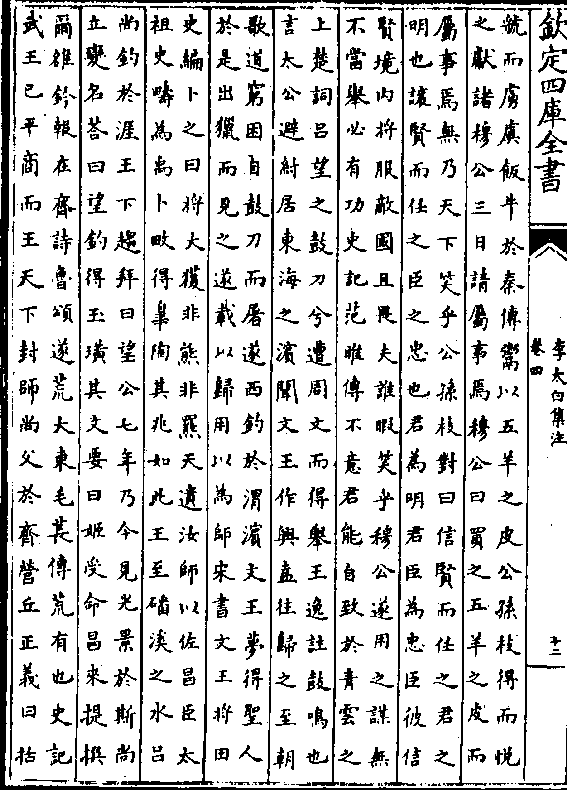 欽定四庫全書
李太白集注
卷四
十二
虢而虜虞飯牛於秦傳鬻以五羊之皮公孫枝得而悅
之獻諸穆公三日請屬事焉穆公曰買之五羊之皮而
屬事焉無乃天下笑乎公孫枝對曰信賢而任之君之
明也讓賢而任之臣之忠也君為明君臣為忠臣彼信
賢境内將服敵國且畏夫誰暇笑乎穆公遂用之謀無
不當舉必有功史記范睢傳不意君能自致於青雲之
上楚詞吕望之鼓刀兮遭周文而得舉王逸註鼓鳴也
言太公避紂居東海之濱聞文王作興盍往歸之至朝
歌道窮困自鼓刀而屠遂西釣於渭濱文王夢得聖人
於是出獵而見之遂載以歸用以為師宋書文王將田
史編卜之曰將大獲非熊非羆天遺汝師以佐昌臣太
祖史疇為禹卜畋得臯陶其兆如此王至磻溪之水吕
尚釣於涯王下趨拜曰望公七年乃今見光景於斯尚
立變名荅曰望釣得玉璜其文要曰姬受命昌來提撰
爾雒鈐報在齊詩魯頌遂荒大東毛萇傳荒有也史記
武王已平商而王天下封師尚父於齊營丘正義曰括